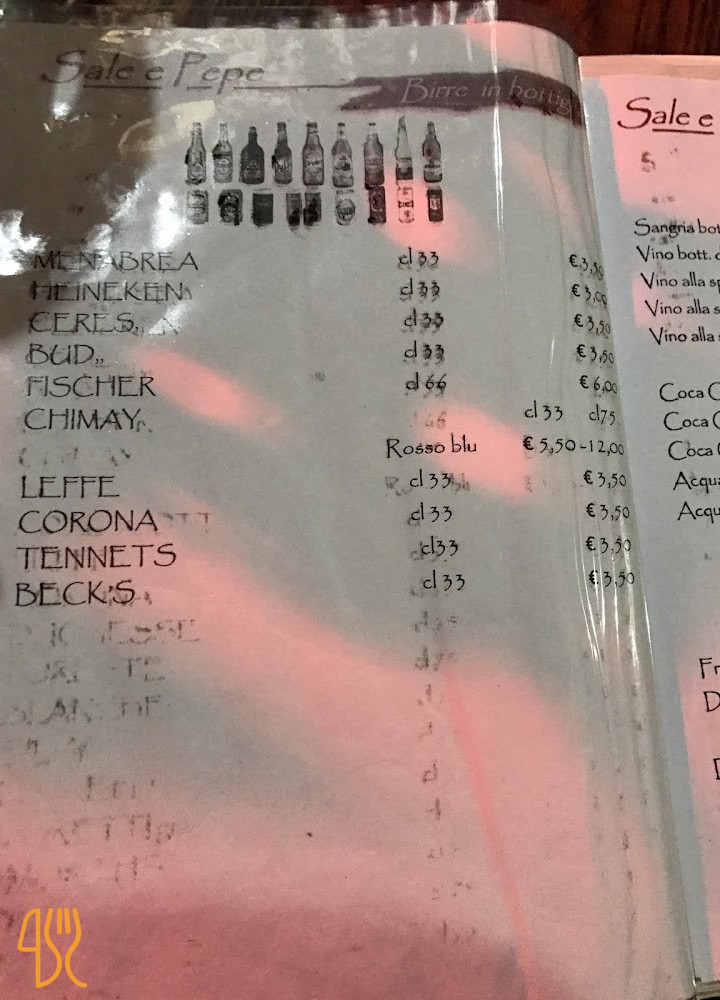 Sale e Pepe
Birre in bottig
MENABREA cl 33 € 3,50
HEINEKEN cl 33 € 3,00
CERES cl 33 € 3,50
BUD cl 33 € 3,50
FISCHER cl 66 € 6,00
CHIMAY cl 33 cl 75
Rosso blu € 5,50 - 12,00
LEFFE cl 33 € 3,50
CORONA cl 33 € 3,50
TENNETS cl 33 € 3,50
BECK'S cl 33 € 3,50
Sale e
Sangria bot
Vino bott.
Vino alla sp
Vino alla s
Vino alla
Coca C
Coca
Coca
Acqu
Acqu
Fr
D